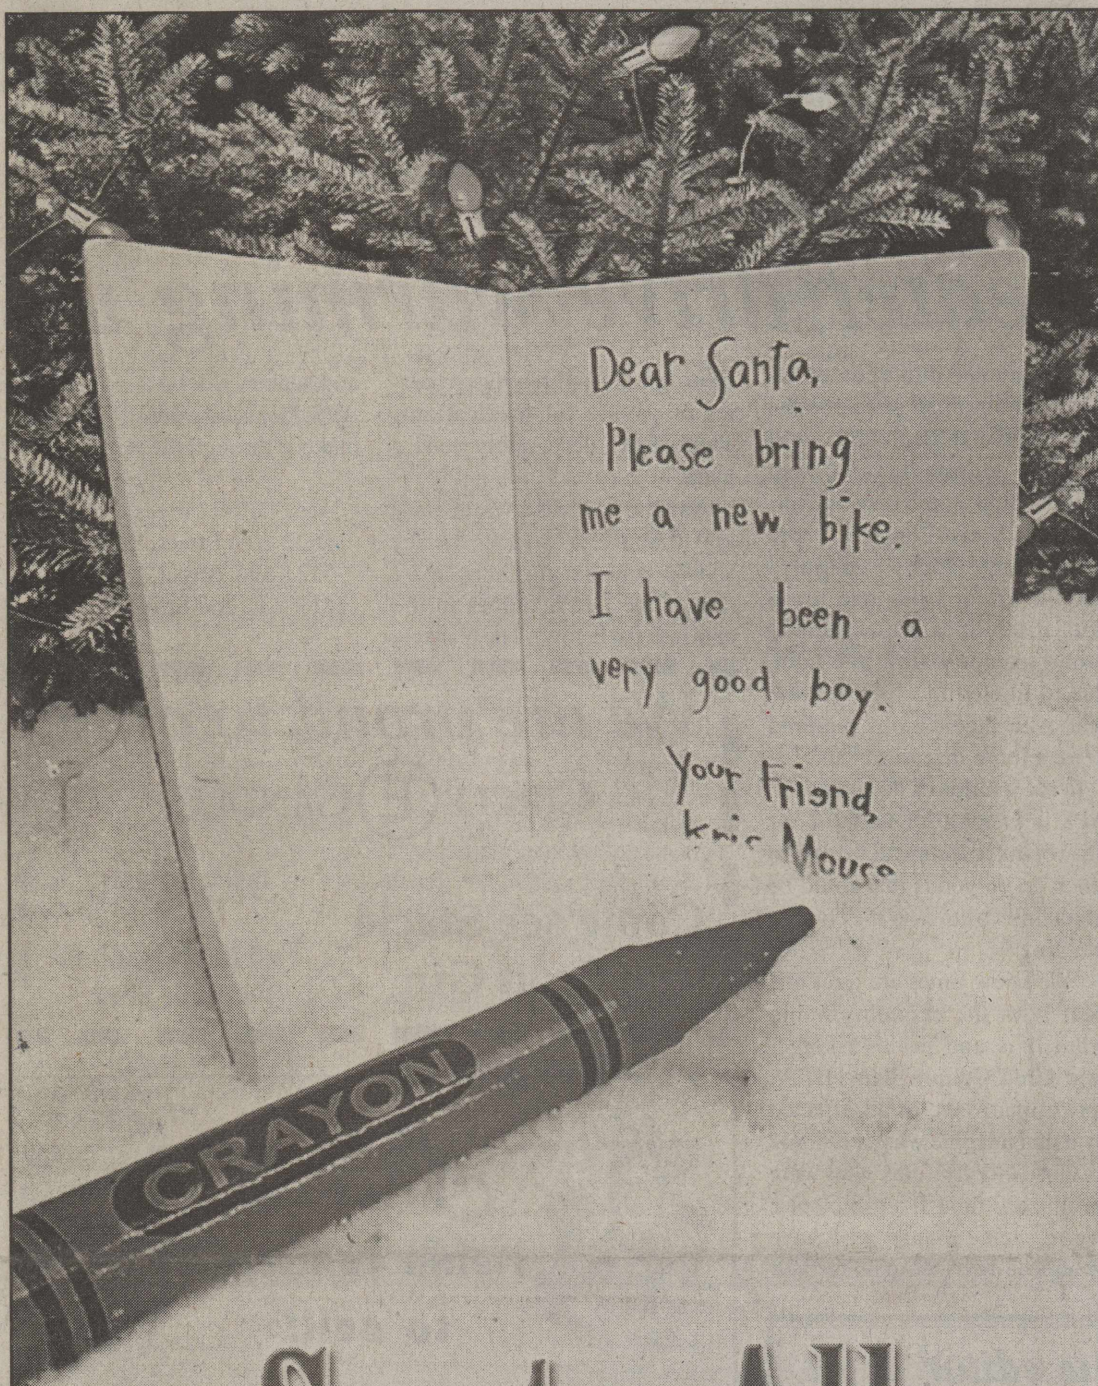 Dear Santa,
Please bring
me a new bike.
I have been a
very good boy.
Your Friend,
Kris Mouse
CRAYON